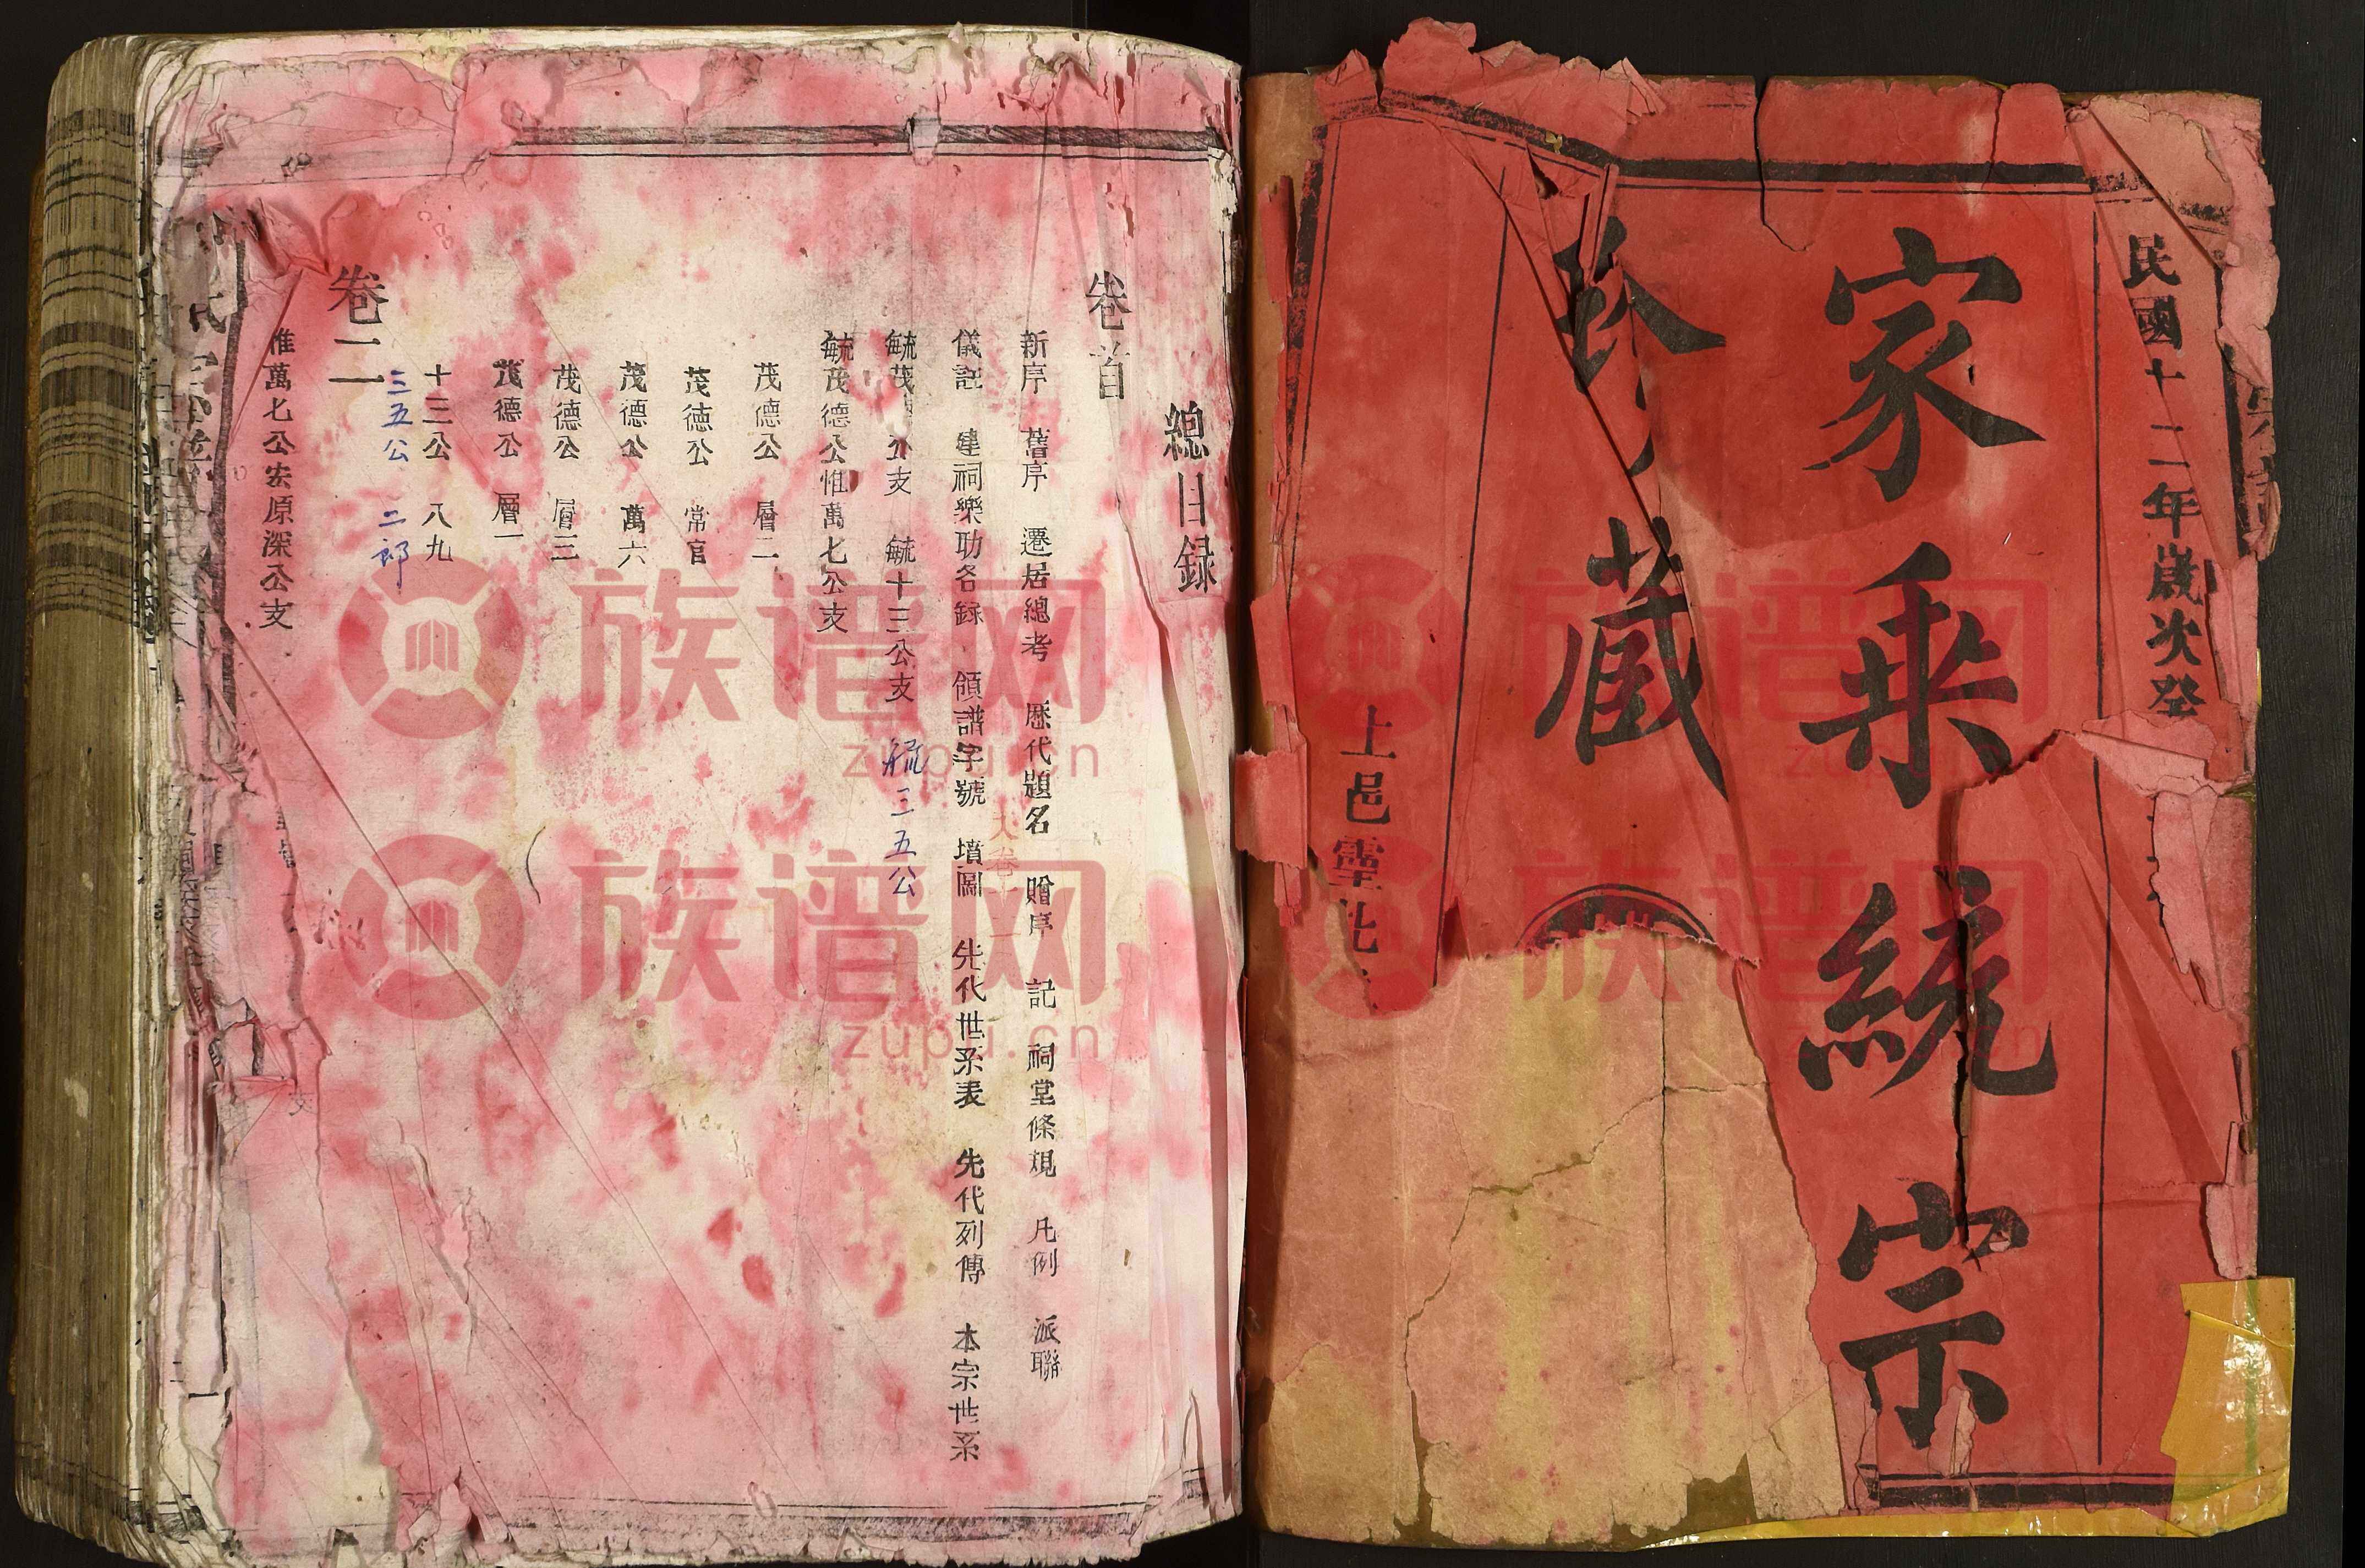 民國十二年歲次癸
家乘統宗
藏
上邑
總目録
卷首
新序 舊序 遷居總考 歷代題名 贈序 記 祠堂條規 凡例 派聯
儀註 建祠樂助名録 領譜字號 墳圖 先代世系表 先代列傳 本宗世系
毓茂 公支 毓十三公支 毓三五公
毓茂德公惟萬七公支
茂德公 層二
茂德公 常官
茂德公 萬六
茂德公 層三
茂德公 層一
十三公 八九
三五公 二郎
卷二
惟萬七公宏原深公支
支
族谱网
zupu.cn
族谱网
zupu.cn
族谱网
zupu.cn
族谱网
zupu.cn